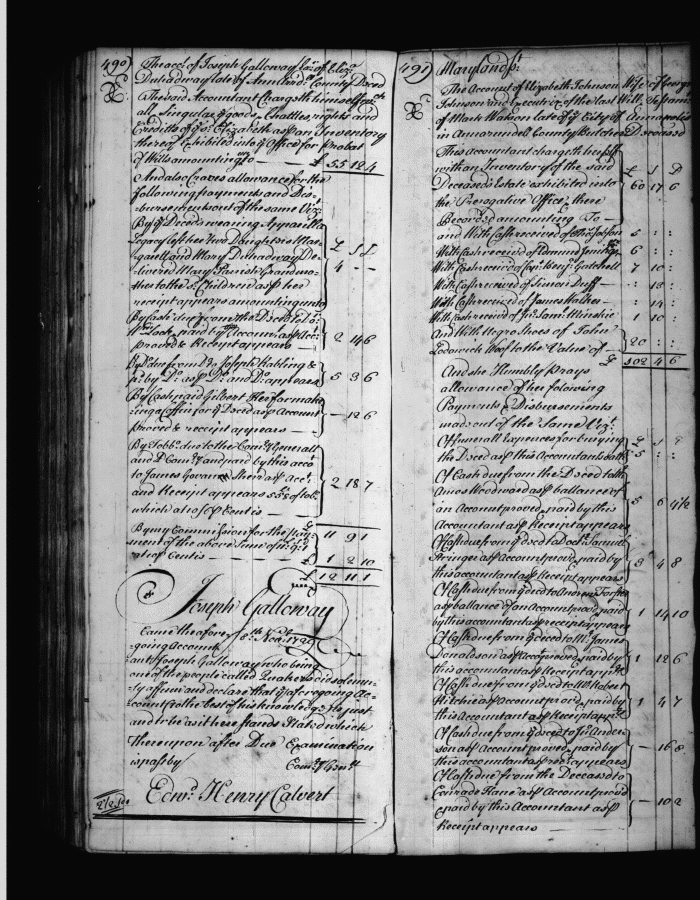 490
The acct. of Joseph Galloway
Dutradway late of County Deced
The said Accountant Chargeth himself
all Singular goods Chattles rights and
Credits of ye. sd. Elizabeth as pan Inventory
thereof Exhibited into ye Office for probat
of Wills amounting to — £ 55 12 4
And also Craves allowance for the
following payments and Dis-
bursements out of the same Viz:
By ye. Deceds wearing Apparill a
Legacy left her two Daughters Mar-
garett and Mary Dutradway De-
livered Mary Parish Grandmo-
ther to the sd. Children as p her
receipt appears amounting unto
£ S d
4 - -
By Cash due from the Deced to
Wm. Lock paid by Accountt. as p Acct.
proved & Receipt appears — 2 14 6
By Do. due from Do. Joseph Kabling &
pd. by Do. as p Do. and Do. appears 5 3 6
By Cash paid Gilbert Hesf for mak-
ing a Coffin for ye Deced as p Account
proved & receipt appears — - 12 6
By Tobbo. due to the Comy. Generall
and D Comy. and paid by this acco
to James Govane Sherif as p Acct.
and Receipt appears 585 of tobo.
which at 10/ p Centis — 2 18 7
By my Commission for the pay-
ment of the above Sum of
at 10 p Centis —
£ 11 9 1
£ 1 2 10
£ 12 11 1
Joseph Galloway
Came the afore
going Accountt. 8th. Novr. 1729
ant Joseph Galloway who being
one of the people called Quakers did solemn-
ly affirm and declare that ye aforegoing Ac-
count to the best of his knowledge is just
and true as it here stands Stated which
thereupon after Due Examination
is pass by Comy. Genll.
Edwd. Henry Calvert
491
Maryland ss.
The Account of Elizabeth Johnson Wife of George
Johnson and Executrix of the last Will & Testamt.
of Mark Watson late of ye City of Annapolis
in Annarundell County Butcher Deceased
This Accountant chargeth herself
with an Inventory of the said
Deceaseds Estate exhibited into
the Prerogative Office, there
Recorded amounting To —
£ S D
60 17 6
and With Cash received of Tho. Jobson 5 : :
With Cash received of Edmund Jenings 6 : :
With Cash received of Capt. Benja. Gatchell 7 10 :
With Cash received of Simon Duff — : 12 :
With Cash received of James Walker — : 14 :
With Cash received of Jno. Saml. Minskie 1 10 :
And With Negro Shoes of John
Lodowick Woof to the Value of 20 : :
£ 102 4 6
And she Humbly Prays
allowance of her folowing
Payments & Disbursements
made out of the Same Vizt.
Of funerall Expences for burying
the Deced as p this Accountants oath
£ s d
5 : :
Of Cash due from the Deced to
Amos Woodward as p ballance of
an Account proved, paid by this
Accountant as p Receipt appears
5 6 4½
Of Cash due from ye deced to Doctr. Samuel
Stringer as p Account provd. paid by
this accountant as p receipt appears
3 4 8
Of Cash due from ye deced to Andrew
as p ballance of an Account provd. paid
by this accountant as p receipt appears
1 14 10
Of Cash due from ye deced to Mr. James
Donaldson as p Acct. proved & paid by
this accountant as p receipt appears
1 12 6
Of Cash due from ye deced to Mr. Robert
Ritchie as p Account provd. paid by
this Accountant as p Receipt appears
1 4 7
Of Cash due from ye deced to Ander
son as p Account proved & paid by
this accountant as p rect. appears
- 16 8
Of Cash due from the Deceased to
Conrade Hane as p Account proved
& paid by this Accountant as p
Receipt appears —
- 10 2